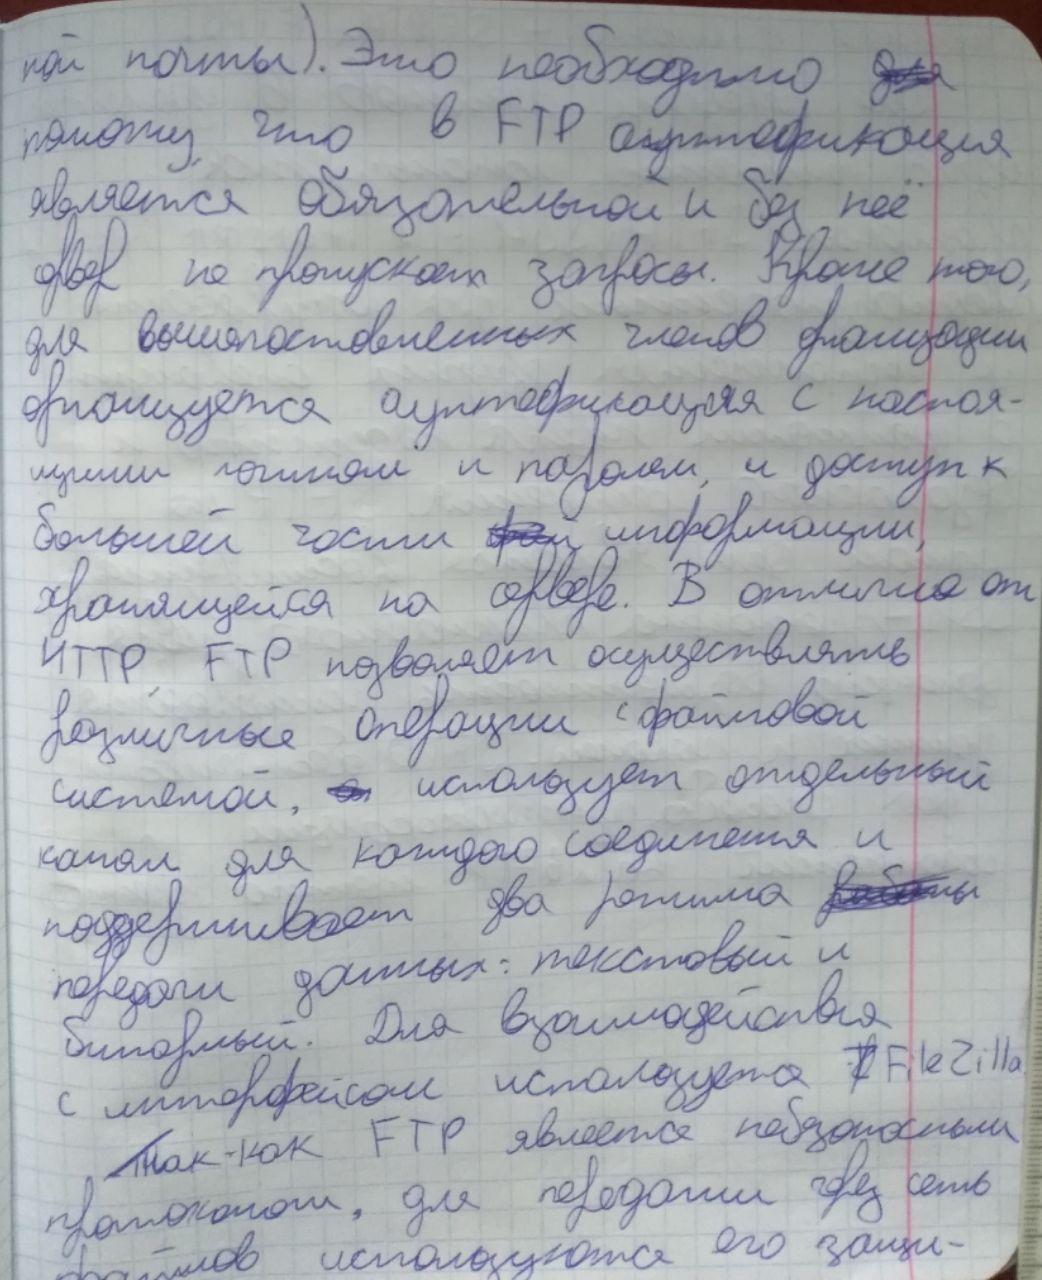 ной почты). Это необходимо
потому, что в FTP аунтефикация
является обязательной и без неё
сервер не пропускает запросы. Кроме того,
для вышепоставленных членов организации
организуется аунтефикация с настоя-
щими логином и паролем, и доступ к
большей части информации,
хранящейся на сервере. В отличие от
HTTP, FTP позволяет осуществлять
различные операции с файловой
системой, использует отдельный
канал для каждого соединения и
поддерживает два режима
передачи данных: текстовый и
бинарный. Для взаимодействия
с интерфейсом используется FileZilla.
Так-как FTP является небезопасным
протоколом, для передачи через сеть
файлов используются его защи-